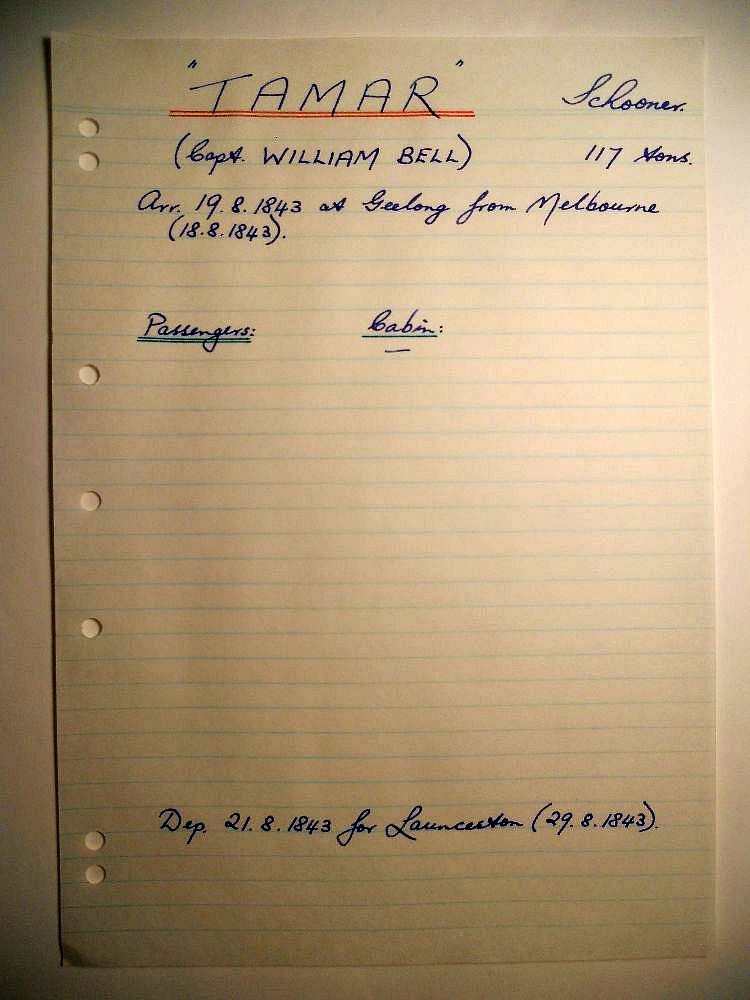 "TAMAR" Schooner.
(Capt. WILLIAM BELL) 117 tons.
Arr. 19.8.1843 at Geelong from Melbourne
(18.8.1843).
Passengers: Cabin:
—
Dep. 21.8.1843 for Launceston (29.8.1843).